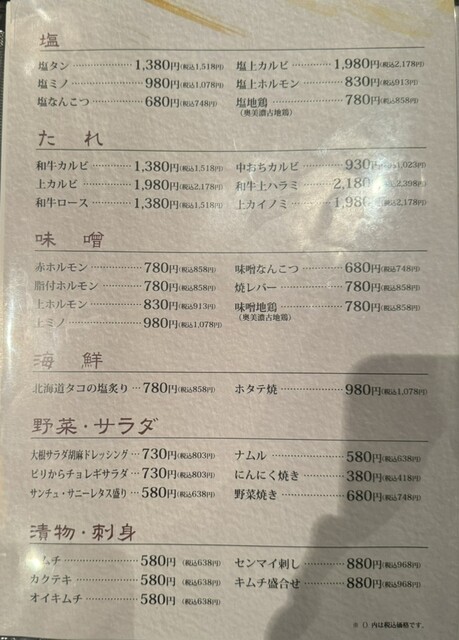 塩
塩タン 1,380円(税込1,518円)
塩ミノ 980円(税込1,078円)
塩なんこつ 680円(税込748円)
塩上カルビ 1,980円(税込2,178円)
塩上ホルモン 830円(税込913円)
塩地鶏 780円(税込858円)
(奥美濃古地鶏)
たれ
和牛カルビ 1,380円(税込1,518円)
上カルビ 1,980円(税込2,178円)
和牛ロース 1,380円(税込1,518円)
中おちカルビ 930円(税込1,023円)
和牛上ハラミ 2,180円(税込2,398円)
上カイノミ 1,980円(税込2,178円)
味噌
赤ホルモン 780円(税込858円)
脂付ホルモン 780円(税込858円)
上ホルモン 830円(税込913円)
上ミノ 980円(税込1,078円)
味噌なんこつ 680円(税込748円)
焼レバー 780円(税込858円)
味噌地鶏 780円(税込858円)
(奥美濃古地鶏)
海鮮
北海道タコの塩炙り 780円(税込858円)
ホタテ焼 980円(税込1,078円)
野菜・サラダ
大根サラダ胡麻ドレッシング 730円(税込803円)
ピリからチョレギサラダ 730円(税込803円)
サンチュ・サニーレタス盛り 580円(税込638円)
ナムル 580円(税込638円)
にんにく焼き 380円(税込418円)
野菜焼き 680円(税込748円)
漬物・刺身
ムチ 580円(税込638円)
カクテキ 580円(税込638円)
オイキムチ 580円(税込638円)
センマイ刺し 880円(税込968円)
キムチ盛合せ 880円(税込968円)
※()内は税込価格です。